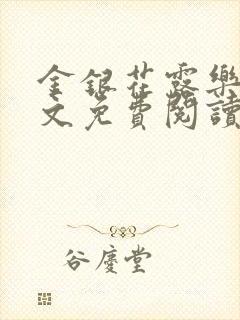 金銀花露樂
文免費閱讀
谷慶堂